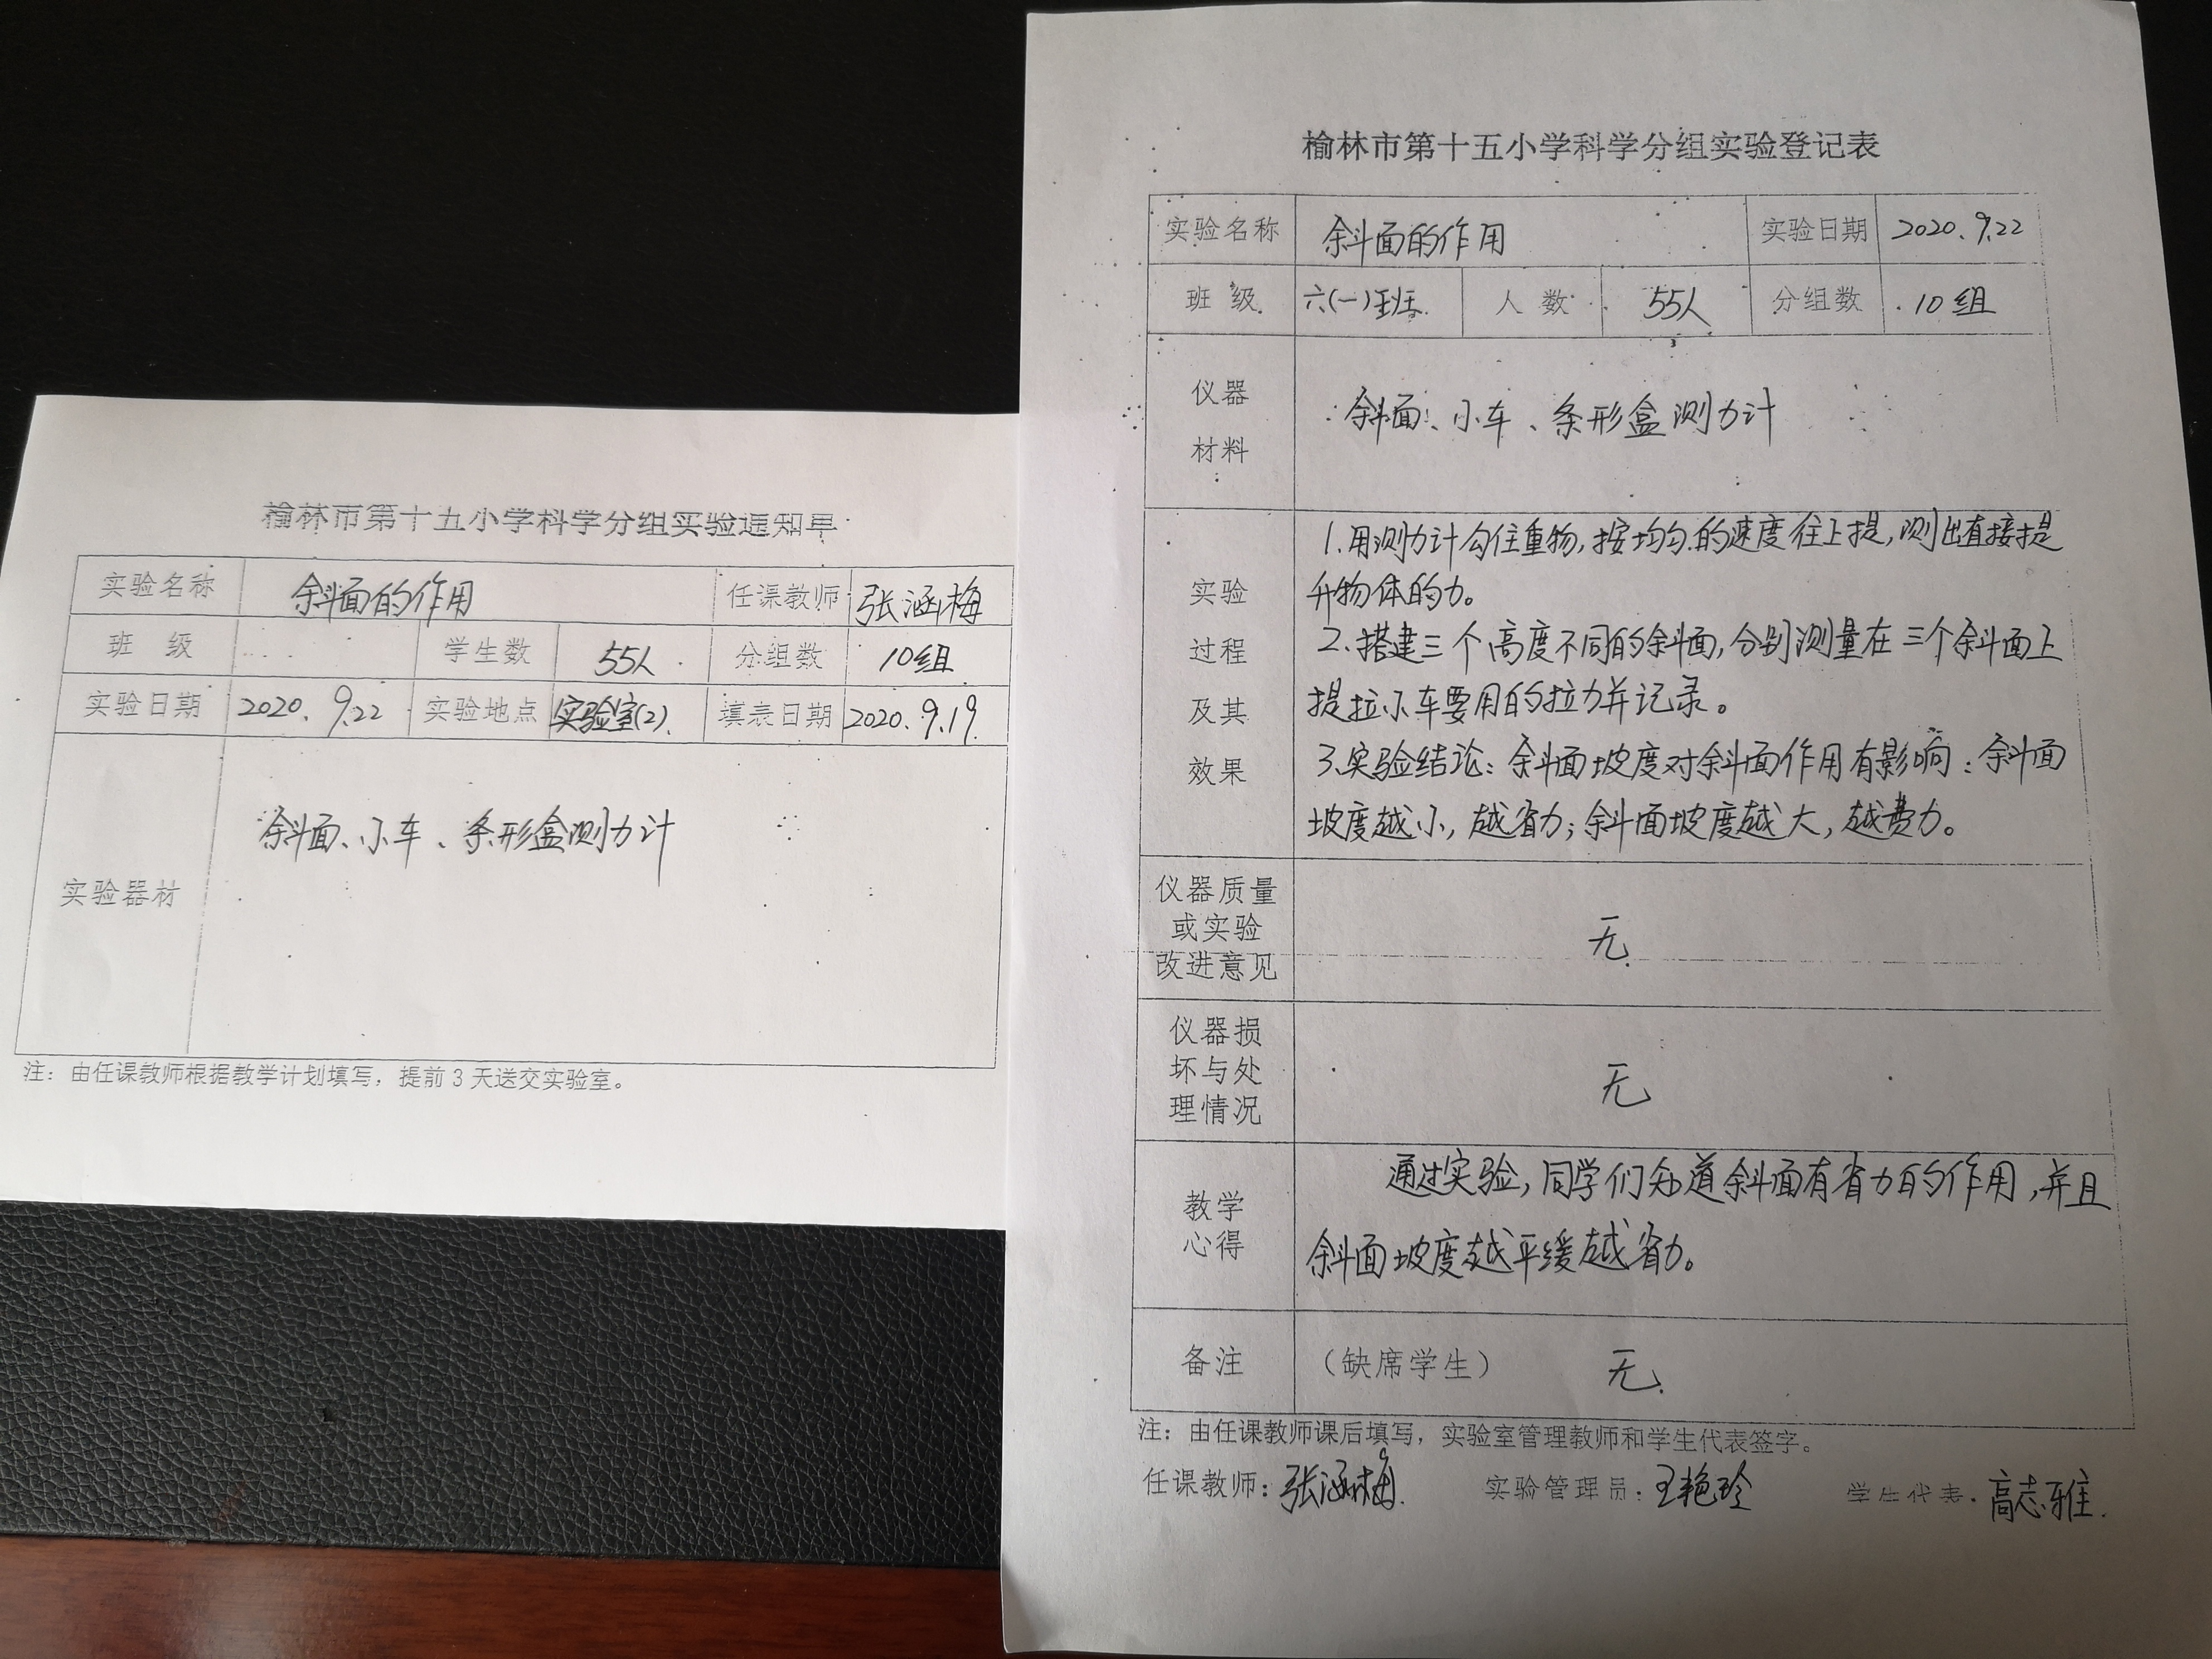 榆林市第十五小学科学分组实验通知单
实验名称 斜面的作用 任课教师 张涵梅
班 级 学生数 55人 分组数 10组
实验日期 2020.9.22 实验地点 实验室(2) 填表日期 2020.9.19
实验器材 斜面、小车、条形盒测力计
注：由任课教师根据教学计划填写，提前3天送交实验室。
榆林市第十五小学科学分组实验登记表
实验名称 斜面的作用 实验日期 2020.9.22
班 级 六(一)班 人 数 55人 分组数 10组
仪器
材料
斜面、小车、条形盒测力计
实验
过程
及其
效果
1.用测力计勾住重物,按均匀的速度往上提,测出直接提
升物体的力。
2.搭建三个高度不同的斜面,分别测量在三个斜面上
提拉小车要用的拉力并记录。
3.实验结论：斜面坡度对斜面作用有影响：斜面
坡度越小,越省力;斜面坡度越大,越费力。
仪器质量
或实验
改进意见
无
仪器损
坏与处
理情况
无
教学
心得
通过实验,同学们知道斜面有省力的作用,并且
斜面坡度越平缓越省力。
备注 （缺席学生） 无
注：由任课教师课后填写，实验室管理教师和学生代表签字。
任课教师：张涵梅 实验管理员：王艳玲 学生代表：高志雅